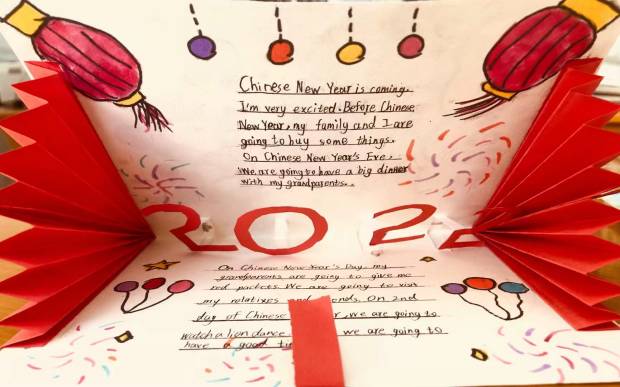 Chinese New Year is coming.
I'm very excited. Before Chinese
New Year, my family and I are
going to buy some things.
On Chinese New Year's Eve,
we are going to have a big dinner
with my grandparents.
2022
On Chinese New Year's Day, my
grandparents are going to give me
red packets. We are going to visit
my relatives and friends. On 2nd
day of Chinese we are going to
watch a lion dance. we are going to
have a good